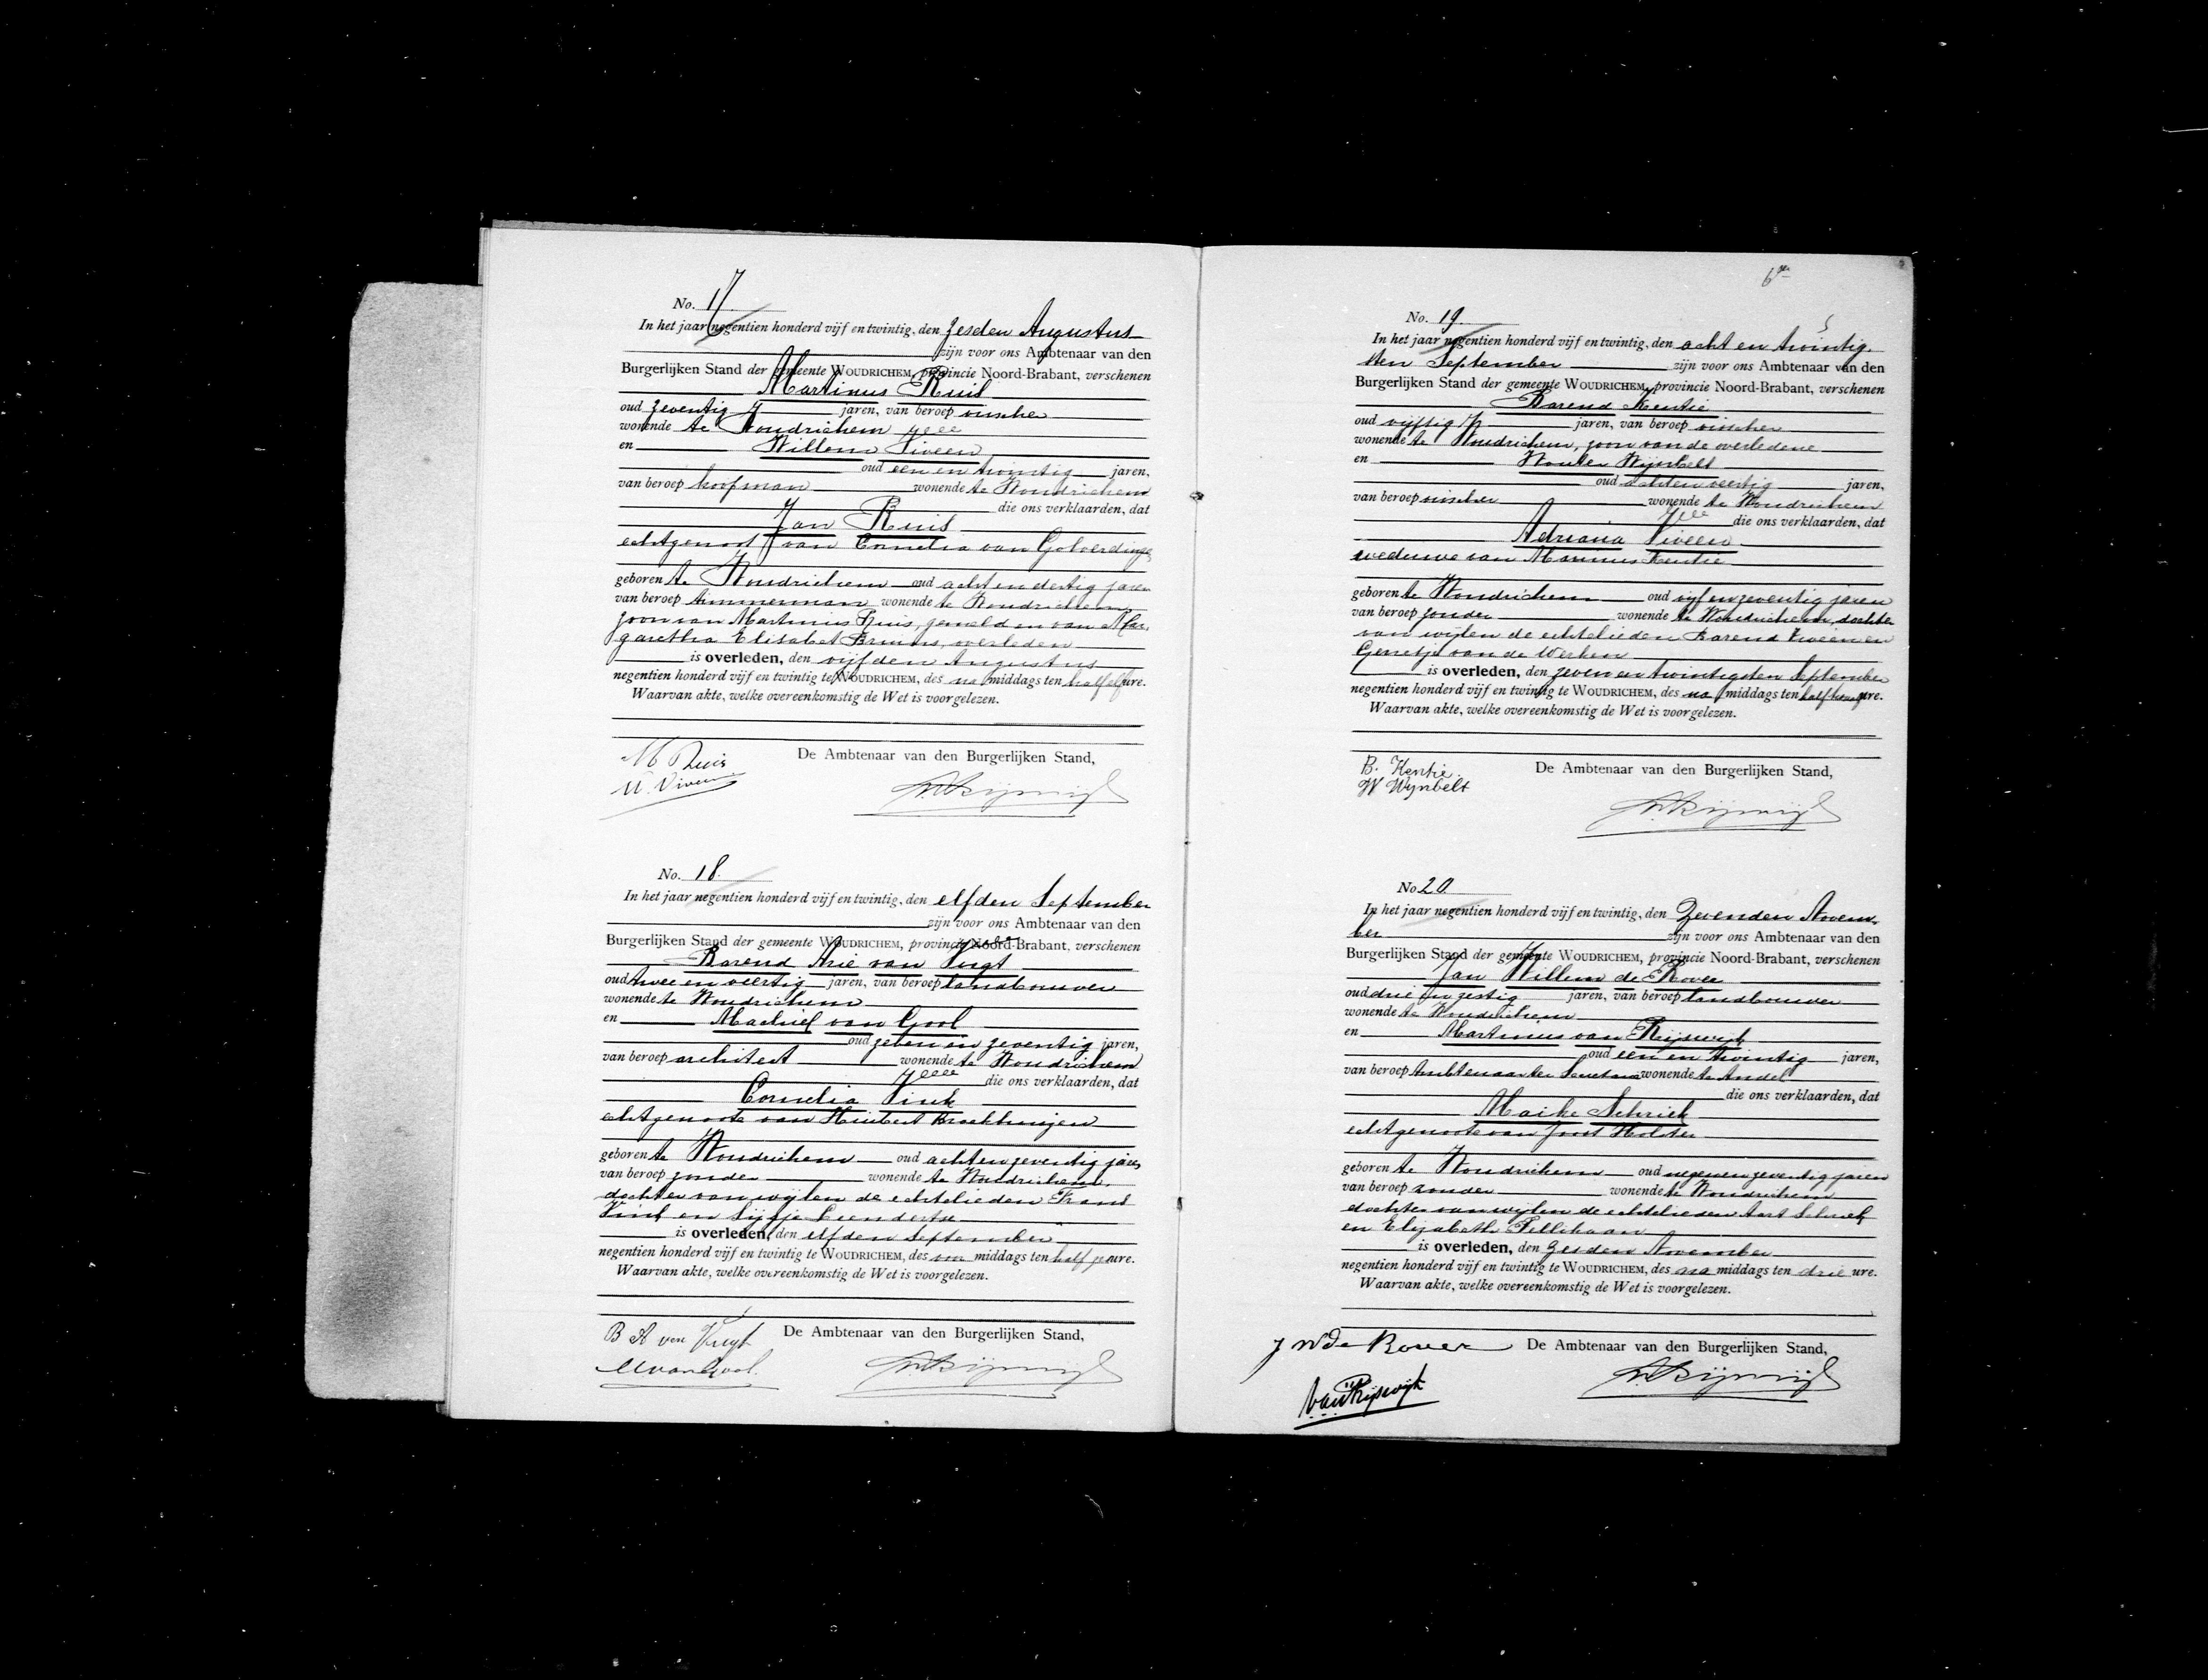 No. 17
In het jaar negentien honderd vijf en twintig, den zesden Augustus
zijn voor ons Ambtenaar van den
Burgerlijken Stand der gemeente WOUDRICHEM, provincie Noord-Brabant, verschenen
Martinus Ruis
oud zeventig jaren, van beroep visscher
wonende te Woudrichem
en Willem Viveen
oud een en twintig jaren,
van beroep koopman wonende te Woudrichem
die ons verklaarden, dat
Jan Ruis
echtgenoot van Cornelia van Golverdinge
geboren te Woudrichem oud acht en dertig jaren
van beroep timmerman wonende te Woudrichem
zoon van Martinus Ruis, gemeld en van Mar
garetha Elisabet Bruins, overleden
is overleden, den vijfden Augustus
negentien honderd vijf en twintig te WOUDRICHEM, des na middags ten half elf ure.
Waarvan akte, welke overeenkomstig de Wet is voorgelezen.
M Ruis De Ambtenaar van den Burgerlijken Stand,
W. Viveen
No. 18.
In het jaar negentien honderd vijf en twintig, den elfden September
zijn voor ons Ambtenaar van den
Burgerlijken Stand der gemeente WOUDRICHEM, provincie Noord-Brabant, verschenen
Barend Arie van Vugt
oud twee en veertig jaren, van beroep landbouwer
wonende te Woudrichem
en Machiel van Gool
oud zeven en zeventig jaren,
van beroep architect wonende te Woudrichem
die ons verklaarden, dat
Cornelia Vink
echtgenoote van Huibert Broekhuijzen
geboren te Woudrichem oud acht en zeventig jaren
van beroep zonder wonende te Woudrichem,
dochter van wijlen de echtelieden Frans
Vink en Sijgje Leendertse
is overleden, den elfden September
negentien honderd vijf en twintig te WOUDRICHEM, des vm middags ten half ure.
Waarvan akte, welke overeenkomstig de Wet is voorgelezen.
B A van Vugt De Ambtenaar van den Burgerlijken Stand,
M van Gool.
6de
No. 19.
In het jaar negentien honderd vijf en twintig, den acht en twintig
sten September zijn voor ons Ambtenaar van den
Burgerlijken Stand der gemeente WOUDRICHEM, provincie Noord-Brabant, verschenen
Barend Kentie
oud vijftig jaren, van beroep visscher
wonende te Woudrichem, zoon van de overledene
en Wouter Wijnbelt
oud acht en veertig jaren,
van beroep visscher wonende te Woudrichem
die ons verklaarden, dat
Adriana Viveen
weduwe van Marinus Kentie
geboren te Woudrichem oud vijf en zeventig jaren
van beroep zonder wonende te Woudrichem, dochter
van wijlen de echtelieden Barend Viveen en
Gerretje van de Werken
is overleden, den zeven en twintigsten September
negentien honderd vijf en twintig te WOUDRICHEM, des na middags ten half ure.
Waarvan akte, welke overeenkomstig de Wet is voorgelezen.
B. Kentie. De Ambtenaar van den Burgerlijken Stand,
W Wijnbelt
No 20.
In het jaar negentien honderd vijf en twintig, den zevenden Novem-
ber zijn voor ons Ambtenaar van den
Burgerlijken Stand der gemeente WOUDRICHEM, provincie Noord-Brabant, verschenen
Jan Willem de Rover
oud drie en zestig jaren, van beroep landbouwer
wonende te Woudrichem
en Martinus van Rijswijk
oud een en twintig jaren,
van beroep Ambtenaar ter Secretarie wonende te Andel
die ons verklaarden, dat
Maike Schriek
echtgenoote van Joost Holster
geboren te Woudrichem oud negen en zeventig jaren
van beroep zonder wonende te Woudrichem
dochter van wijlen de echtelieden Aart Schriek
en Elizabeth Pellikaan
is overleden, den zesden November
negentien honderd vijf en twintig te WOUDRICHEM, des na middags ten drie ure.
Waarvan akte, welke overeenkomstig de Wet is voorgelezen.
J W de Rover De Ambtenaar van den Burgerlijken Stand,
van Rijswijk